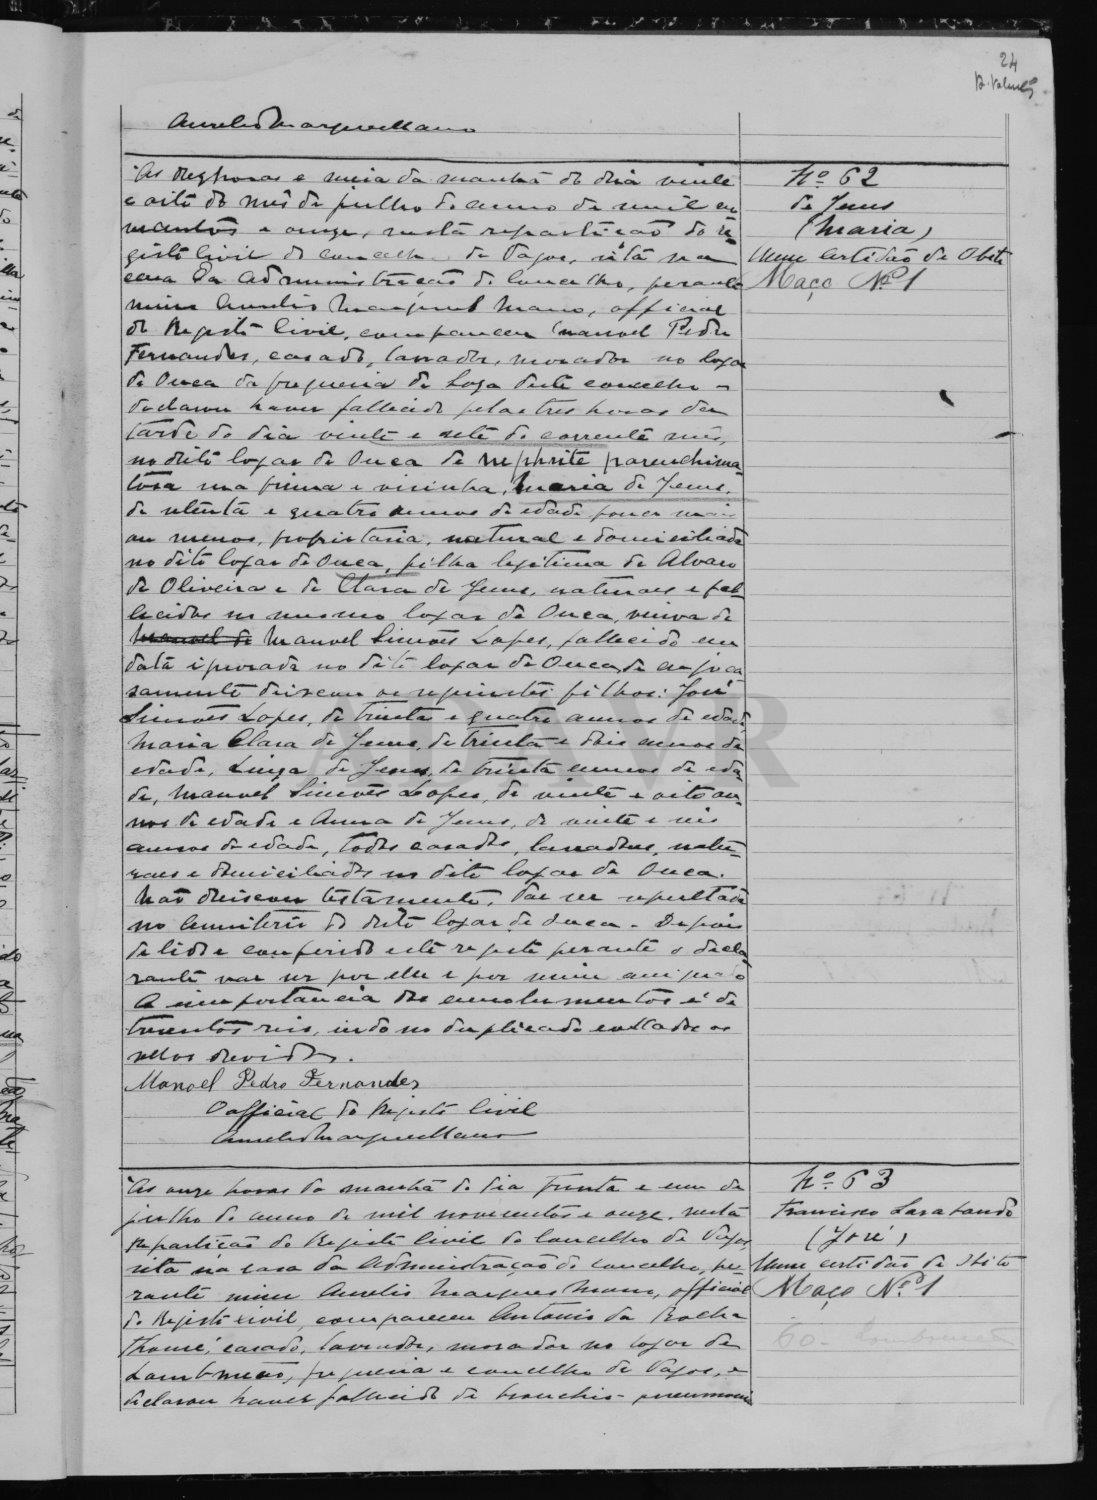 24
Aurelio Marques Mano
Nº 62
de Jesus
(Maria)
Uma certidão de Obito
Maço Nº 1
As dez horas e meia da manhã do dia vinte
e oito do mês de julho do anno de mil no
vecentos e onze, nesta repartição do re
gisto civil do concelho de Vagos, sita na
casa da Administração do Concelho, perante
mim Aurelio Marques Mano, official
do Registo Civil, compareceu Manoel Pedro
Fernandes, casado, lavrador, morador no logar
de Ouca da freguesia de Soza deste concelho e
declarou haver fallecido pelas tres horas da
tarde do dia vinte e sete do corrente mês,
no dito logar de Ouca de nephrite parenchima
tosa sua prima e visinha, Maria de Jesus,
de setenta e quatro annos de edade pouco mais
ou menos, proprietaria, natural e domiciliada
no dito logar de Ouca, filha legitima de Alvaro
de Oliveira e de Clara de Jesus, naturaes e fal
lecidos no mesmo logar de Ouca, viuva de
Manoel de Manuel Simões Lopes, fallecido em
data ignorada no dito logar de Ouca, de cujo ca
samento deixou os seguintes filhos: José
Simões Lopes, de trinta e quatro annos de edade,
Maria Clara de Jesus, de trinta e dois annos de
edade, Luiza de Jesus, de trinta annos de eda
de, Manuel Simões Lopes, de vinte e oito an
nos de edade e Anna de Jesus, de vinte e seis
annos de edade, todos casados, lavradores, natu
raes e domiciliados no dito logar de Ouca.
Não deixou testamento, vae ser sepultada
no cemiterio do dito logar de Ouca. Depois
de lido e conferido este registo perante o decla
rante vae ser por elle e por mim assignado
A importancia dos emolumentos é de
trezentos reis, indo no duplicado collados os
sellos devidos.
Manoel Pedro Fernandes
O official do Registo Civil
Aurelio Marques Mano
Nº 63
Francisco Sarabando
(José)
Uma certidão de Obito
Maço Nº 1
As onze horas da manhã do dia trinta e um de
julho do anno de mil novecentos e onze, nesta
Repartição do Registo Civil do Concelho de Vagos,
sita na casa da Administração do concelho, pe
rante mim Aurelio Marques Mano, official
do Registo civil, compareceu Antonio da Rocha
Thomé, casado, lavrador, morador no logar de
Lombomeão, freguesia e concelho de Vagos, e
declarou haver fallecido de broncho-pneumonia
ADAVR